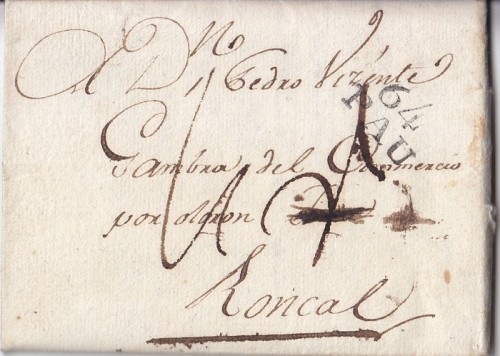 A Dn Pedro Vizente
Gambra del Commercio
por oloron
Roncal
64
PAU